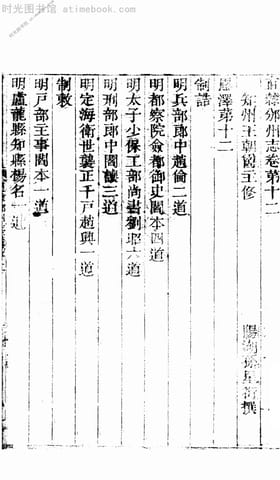 时光图书馆 atimebook.com
直隷邠州志卷第十二
知州王朝爵王修
陽湖孫星衍撰
廕澤第十二
制誥
明兵部郎中趙倫二道
明都察院僉都御史閻本四道
明太子少保工部尚書劉昭六道
明刑部郎中閻讓三道
明定海衛世襲正千戸趙興一道
制敕
明戸部主事閻本一道
明盧龍縣知縣楊名一道